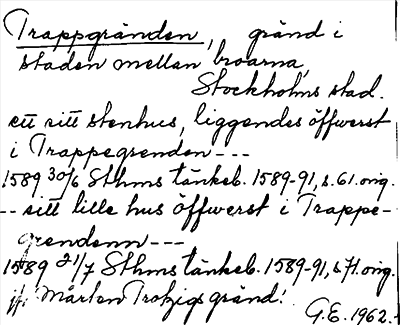 Trappgränden, gränd i
staden mellan broarna,
Stockholms stad.
ett sitt stenhus, liggendes öffwerst
i Trappegrenden ---
1589 30/6 Sthms tänkeb. 1589-91, s. 61. orig.
-- sitt lille hus öffwerst i Trappe-
grendenn ---
1589 21/7 Sthms tänkeb. 1589-91, s 71. orig.
jfr Mårten Trotzigs gränd!
G.E. 1962.